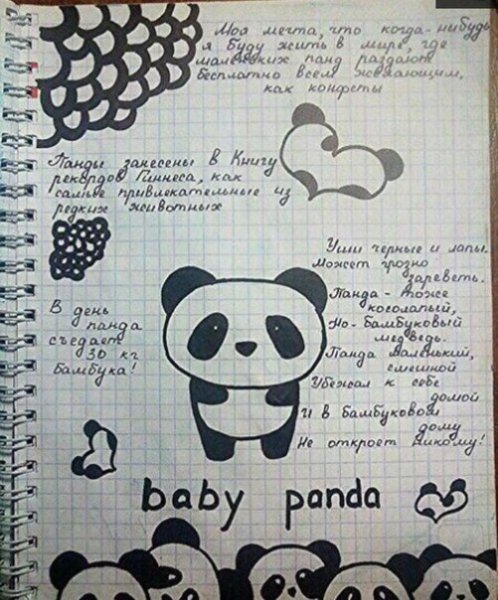 Моя мечта, что когда-нибудь
я буду жить в мире, где
маленьких панд раздают
бесплатно всем желающим,
как конфеты
Панды занесены в Книгу
рекордов Гиннеса, как
самые привлекательные из
редких животных
В день
панда
съедает
30 кг
бамбука!
Уши черные и лапы.
Может грозно
зареветь.
Панда - тоже
косолапый,
Но - бамбуковый
медведь.
Панда маленький,
смешной
Убежал к себе
домой
И в бамбуковом
дому
Не откроет никому!
baby panda